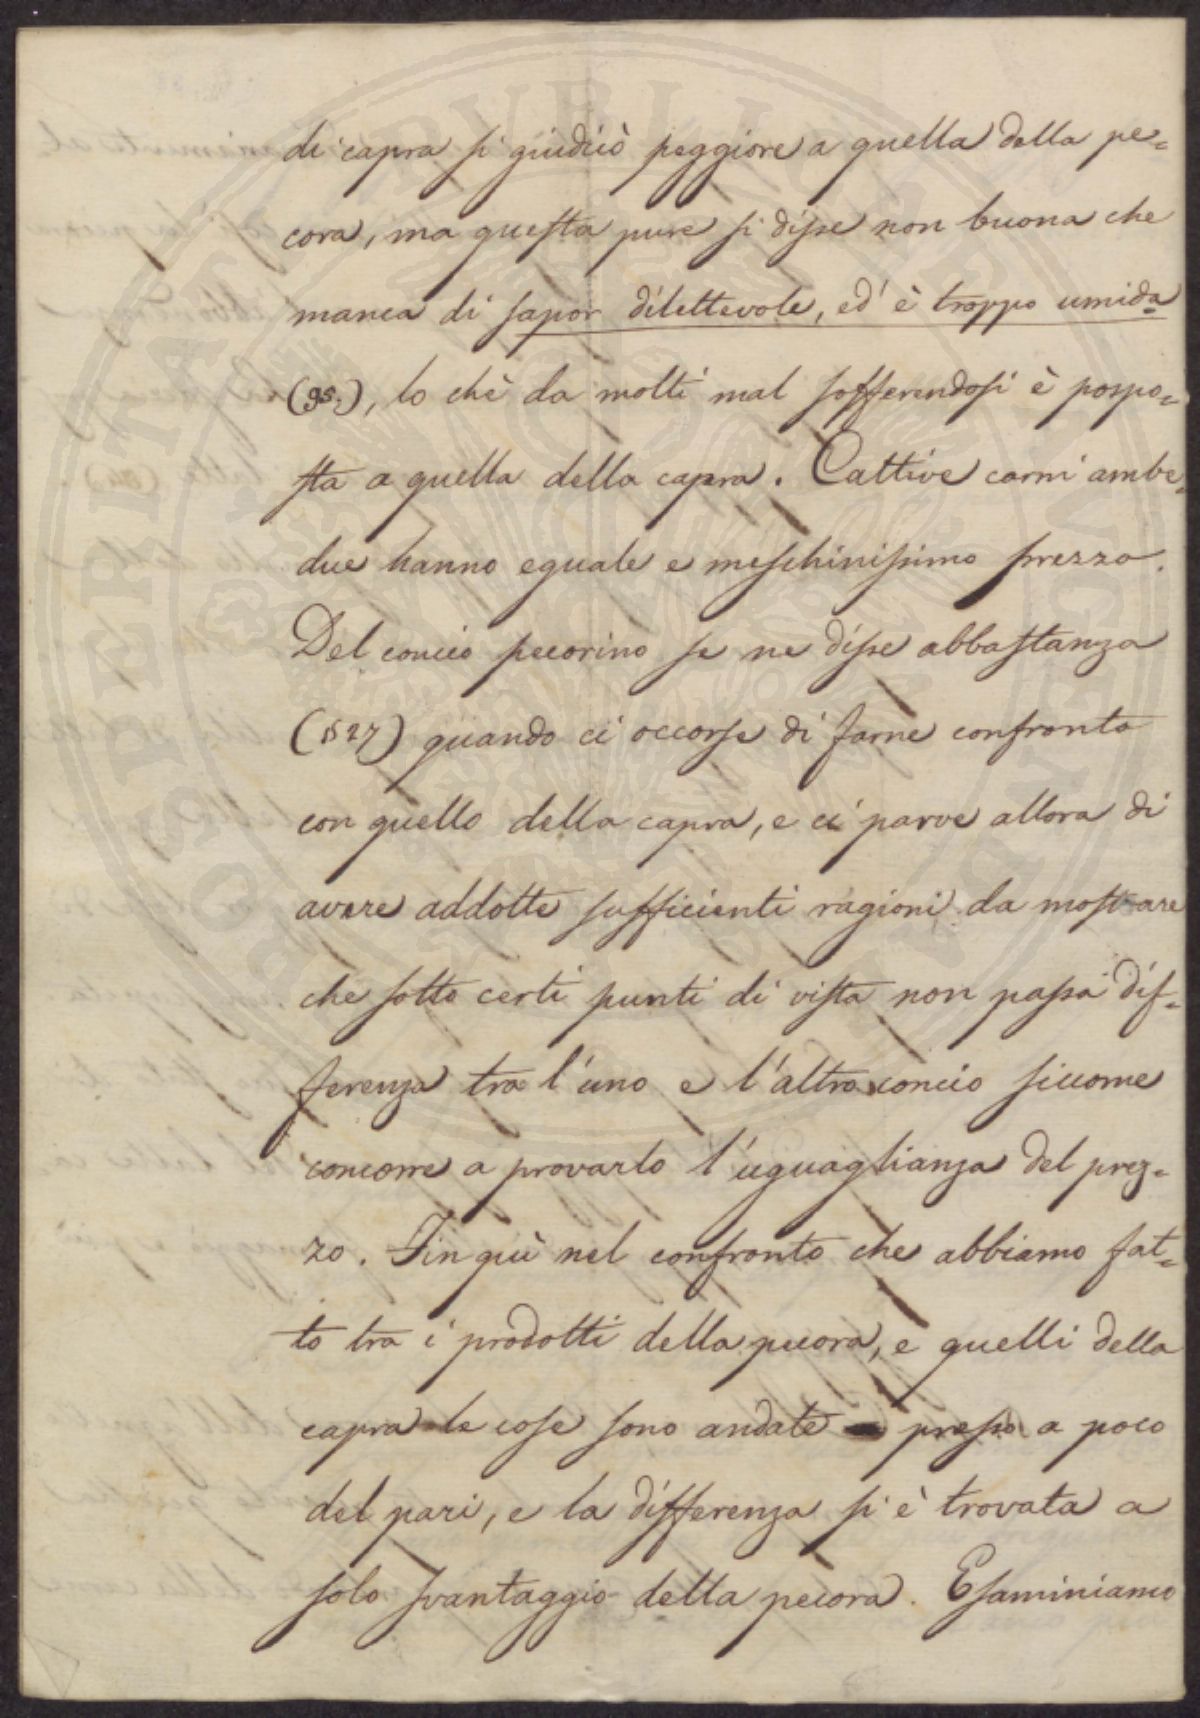 di capra si giudicò peggiore a quella della pe=
cora, ma questa pure si disse non buona che
manca di sapor dilettevole, ed' è troppo umida=
(95.), lo chè da molti mal sofferendosi è pospo=
sta a quella della capra. Cattive carni ambe=
due hanno eguale e meschinissimo prezzo.
Del concio pecorino se ne disse abbastanza
(§27) quando ci occorse di farne confronto
con quello della capra, e ci parve allora di
avere addotte sufficienti ragioni da mostrare
che sotto certi punti di vista non passa dif=
ferenza tra l'uno e l'altro concio siccome
concorre a provarlo l'uguaglianza del prez=
zo. Fin quì nel confronto che abbiamo fat=
to tra i prodotti della pecora, e quelli della
capra le cose sono andate presso a poco
del pari, e la differenza si è trovata a
solo svantaggio della pecora. Esaminiamo